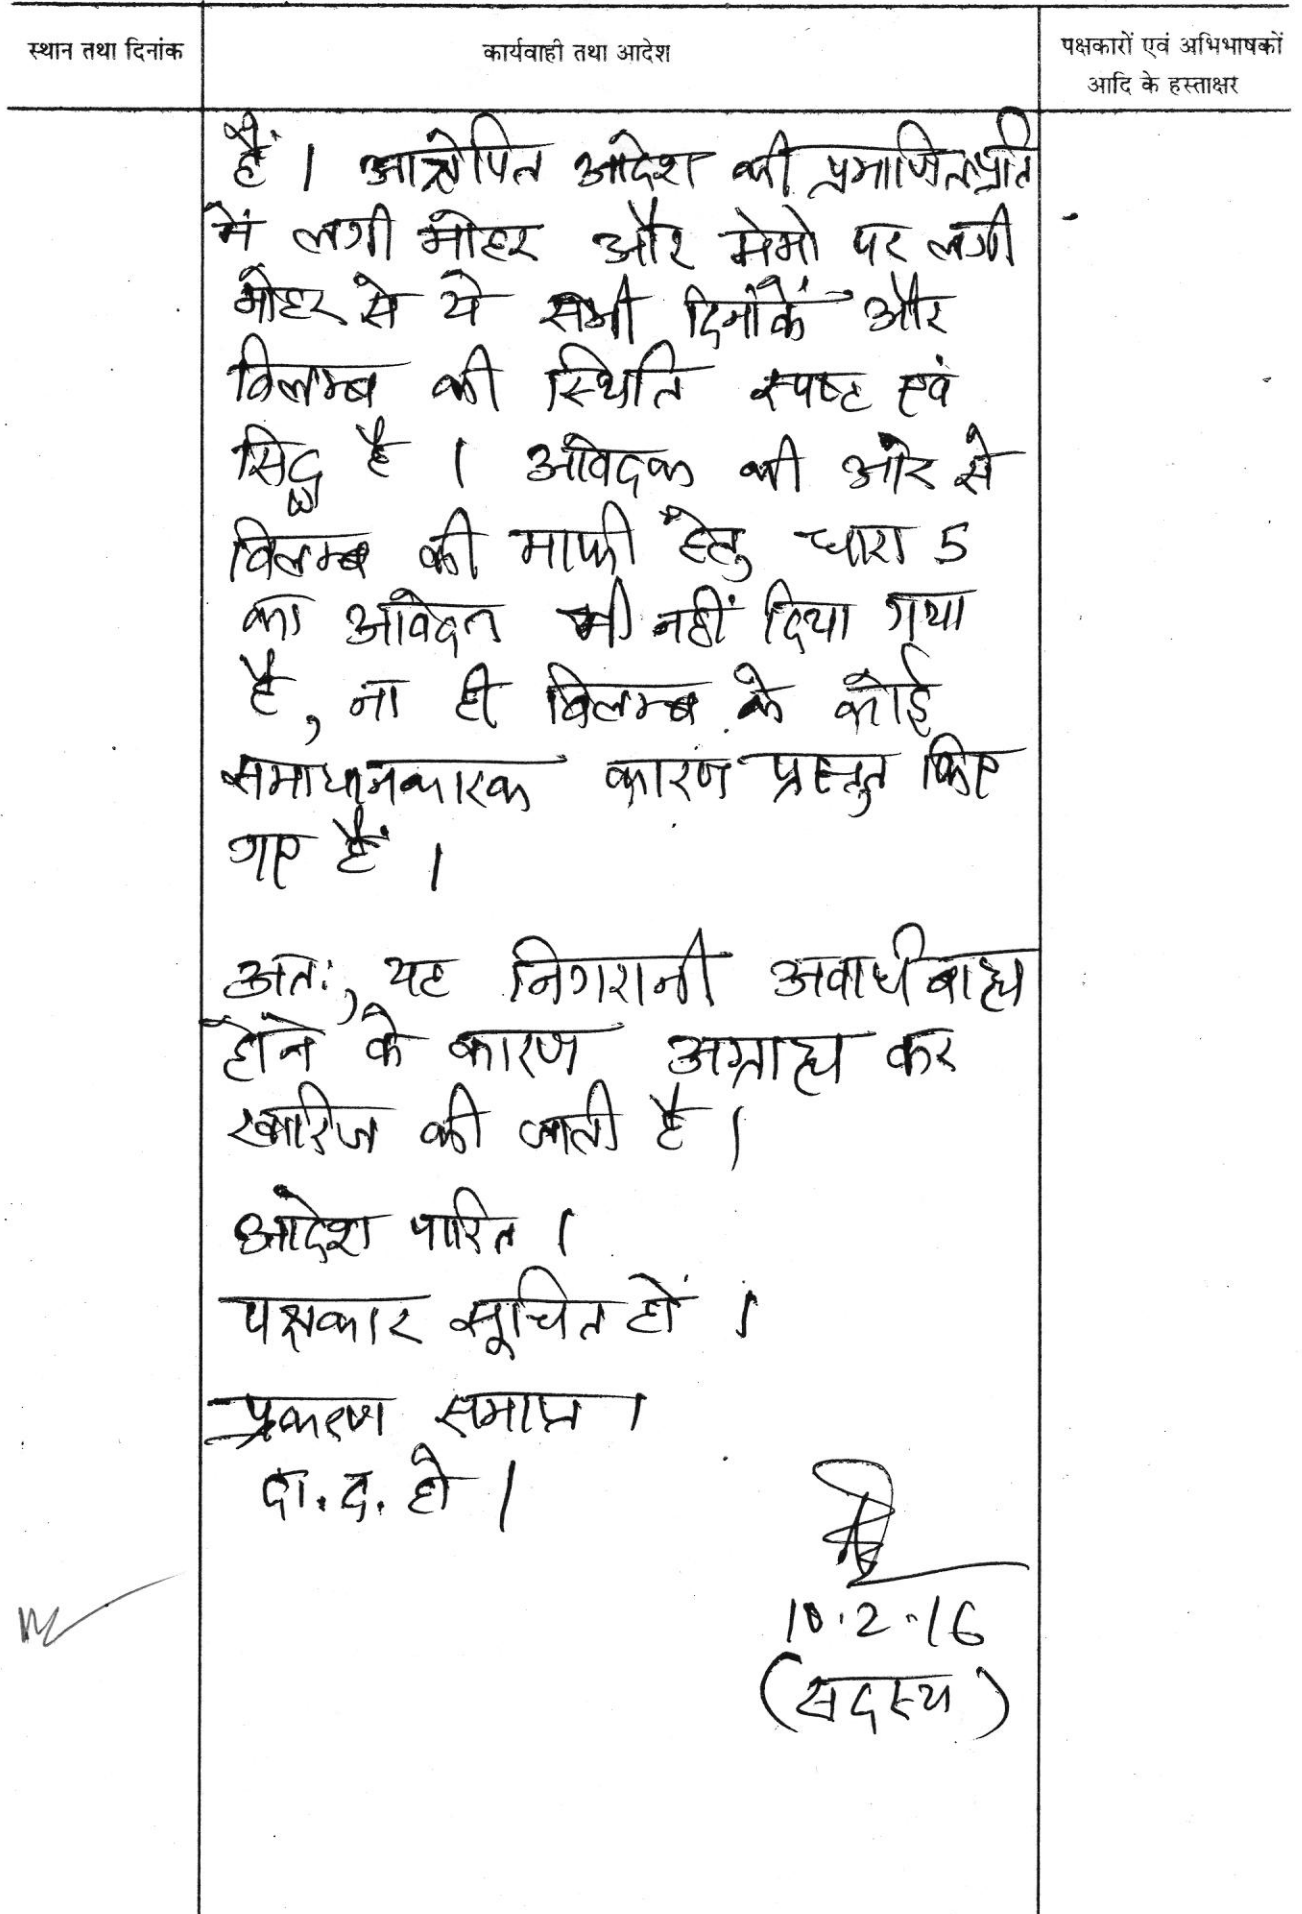 स्थान तथा दिनांक
कार्यवाही तथा आदेश
पक्षकारों एवं अभिभाषकों
आदि के हस्ताक्षर
हैं । आक्षेपित आदेश की प्रमाणित प्रति
में लगी मोहर और मेमो पर लगी
मोहर से ये सभी दिनांकें और
विलम्ब की स्थिति स्पष्ट एवं
सिद्ध है । आवेदक की ओर से
विलम्ब की माफी हेतु धारा 5
का आवेदन भी नहीं दिया गया
है, ना ही विलम्ब के कोई
समाधानकारक कारण प्रस्तुत किए
गए हैं ।
अतः, यह निगरानी अवधि बाह्य
होने के कारण अग्राह्य कर
खारिज की जाती है ।
आदेश पारित ।
पक्षकार सूचित हों ।
प्रकरण समाप्त ।
दा. द. हो ।
10.2.16
(सदस्य)